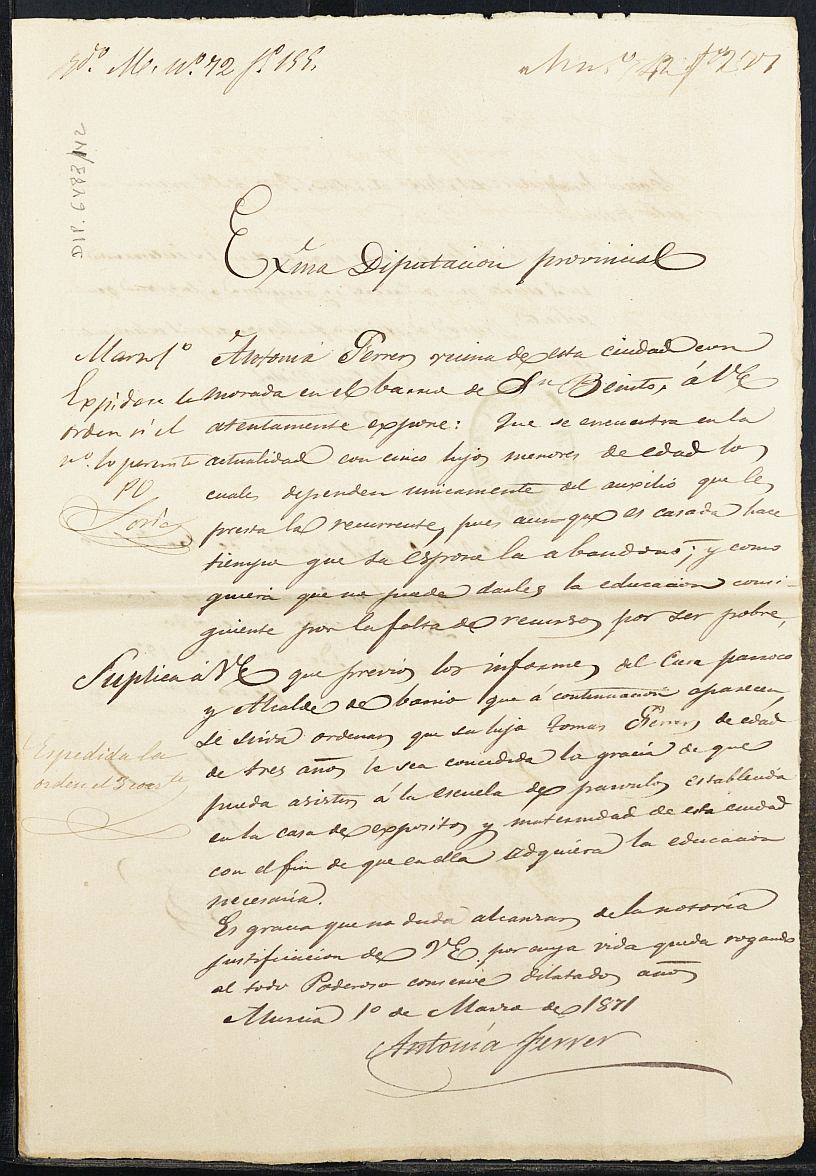 M. nº. 72 fº. 155.
42
DIP. 6483/142
Exma Diputacion provincial
Marzo 1º
Expidase la
orden si el
nº. lo permite
PO
Soria
Antonia Ferrer vecina de esta ciudad con
morada en el barrio de Sn Benito, á VE
atentamente espone: Que se encuentra en la
actualidad con cinco hijos menores de edad los
cuales dependen unicamente del auxilio que les
presta la recurrente, pues aunque es casada hace
tiempo que su esposo la abandonó; y como
quiera que no puede darles la educacion consi-
guiente por la falta de recursos por ser pobre,
Suplica á VE que previos los informes del Cura parroco
y Alcalde de barrio que a continuacion aparecen,
se sirva ordenar que su hijo Tomas Ferrer, de edad
de tres años le sea concedida la gracia de que
pueda asistir á la escuela de parvulos establecida
en la casa de expositos y maternidad de esta ciudad
con el fin de que en ella adquiera la educacion
necesaria.
Espedida la
orden el 3
Es gracia que no duda alcanzar de la notoria
justificacion de VE. por cuya vida queda rogando
al todo Poderoso conserve dilatados años
Murcia 1º de Marzo de 1871
Antonia Ferrer